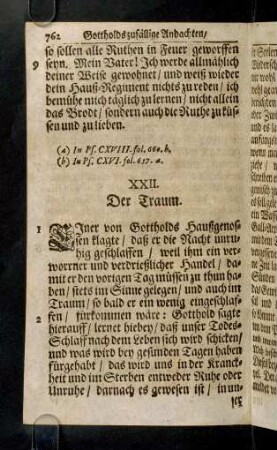 762 Gottholds zufällige Andachten/
so sollen alle Ruthen in Feuer geworffen
9 seyn. Mein Vater! Ich werde allmählich
deiner Weise gewohnet/ und weiß wieder
dein Hauß-Regiment nichts zu reden/ ich
bemühe mich täglich zu lernen/ nicht allein
das Brodt/ sondern auch die Ruthe zu küs-
sen und zu lieben.
(a) In Ps. CXVIII. fol. 660. b.
(b) In Ps. CXVI. fol. 637. a.
XXII.
Der Traum.
1 Einer von Gottholds Haußgenos-
sen klagte/ daß er die Nacht unru-
hig geschlaffen/ weil ihm ein ver-
worrner und verdrießlicher Handel/ da-
mit er den vorigen Tag müssen zu thun ha-
ben/ stets im Sinne gelegen/ und auch im
Traum/ so bald er ein wenig eingeschlaf-
2 fen/ fürkommen wäre: Gotthold sagte
hierauff/ lernet hiebey/ daß unser Todes-
Schlaff nach dem Leben sich wird schicken/
und was wird bey gesunden Tagen haben
fürgehabt/ das wird uns in der Kranck-
heit und im Sterben entweder Ruhe oder
Unruhe/ darnach es gewesen ist/ in un-